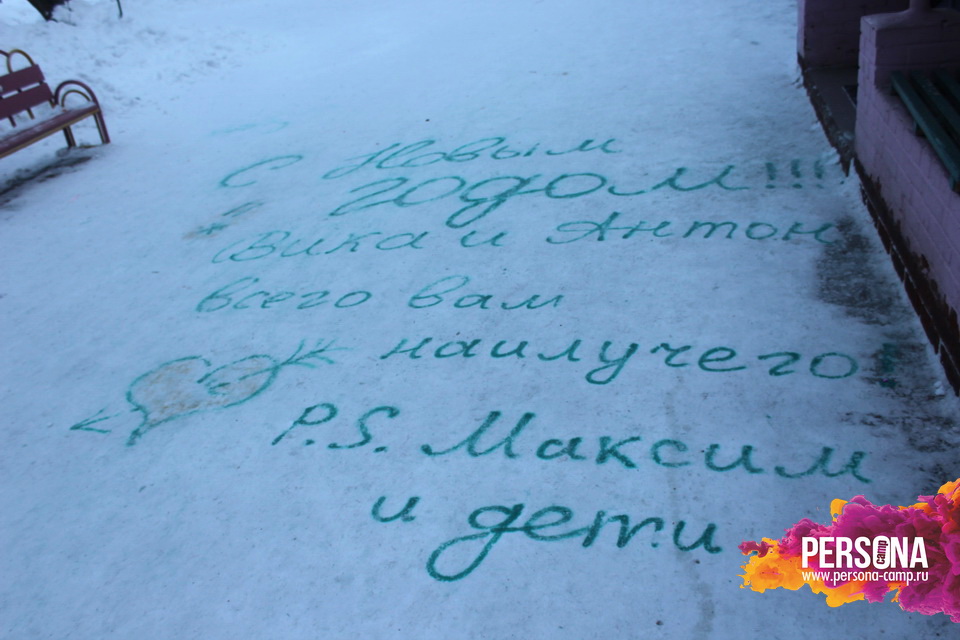 С Новым
годом!!!
Вика и Антон
всего вам
наилучего!
P.S. Максим
и дети
PERSONA CAMP
www.persona-camp.ru